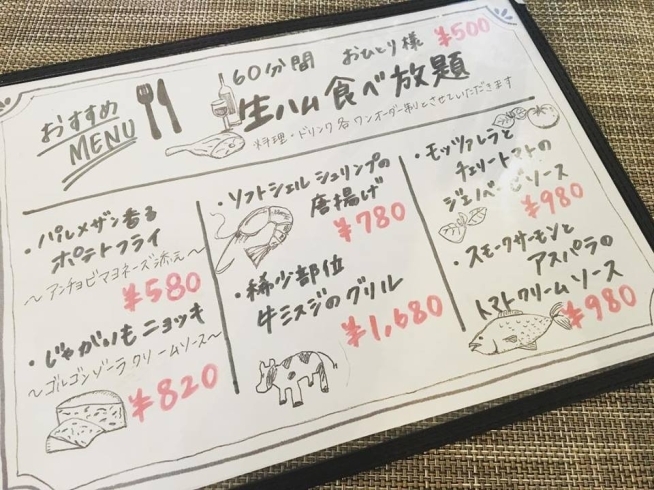 おすすめ
MENU
60分間 おひとり様 ¥500
生ハム食べ放題
料理・ドリンク各ワンオーダー制とさせていただきます
・パルメザン香る
ポテトフライ
〜アンチョビマヨネーズ添え〜
¥580
・じゃがいもニョッキ
〜ゴルゴンゾーラクリームソース〜
¥820
・ソフトシェルシュリンプの
唐揚げ
¥780
・稀少部位
牛ミスジのグリル
¥1,680
・モッツァレラと
チェリートマトの
ジェノベーゼソース
¥980
・スモークサーモンと
アスパラの
トマトクリームソース
¥980